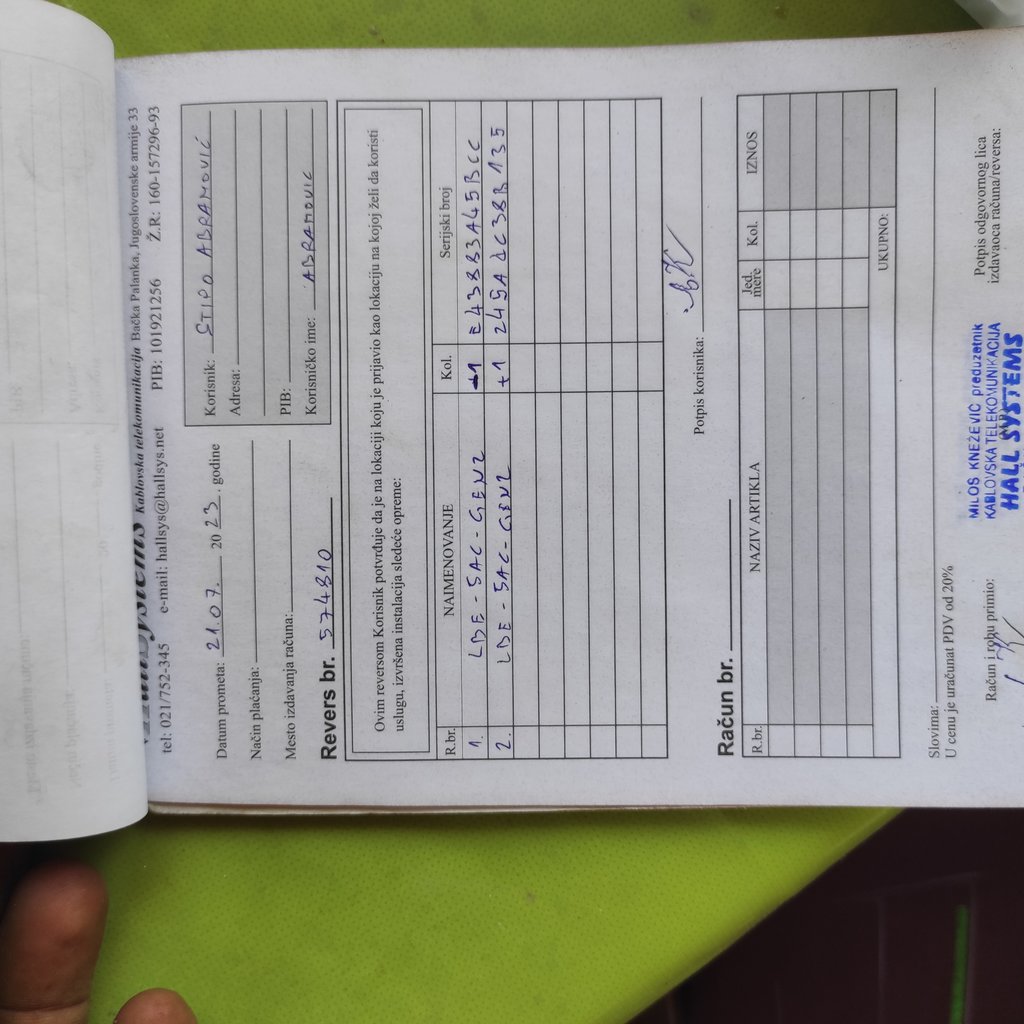 Kablovska telekomunikacija Bačka Palanka, Jugoslovenske armije 33
tel: 021/752-345 e-mail: hallsys@hallsys.net PIB: 101921256 Ž.R: 160-157296-93
Datum prometa: 21.07. 2023. godine
Način plaćanja:
Mesto izdavanja računa:
Revers br. 574810
Korisnik: STIPO ABRAMOVIĆ
Adresa:
PIB:
Korisničko ime: ABRAMOVIC
Ovim reversom Korisnik potvrđuje da je na lokaciji koju je prijavio kao lokaciju na kojoj želi da koristi
uslugu, izvršena instalacija sledeće opreme:
R.br. NAIMENOVANJE Kol. Serijski broj
1. LBE-5AC-GEN2 +1 E43883A45BCC
2. LBE-5AC-GEN2 +1 245A4C38B135
Potpis korisnika:
Račun br.
R.br. NAZIV ARTIKLA Jed. mere Kol. IZNOS
UKUPNO:
Slovima:
U cenu je uračunat PDV od 20%
Račun i robu primio:
MILOŠ KNEŽEVIĆ preduzetnik
KABLOVSKA TELEKOMUNIKACIJA
HALL SYSTEMS
Potpis odgovornog lica
izdavaoca računa/reversa: